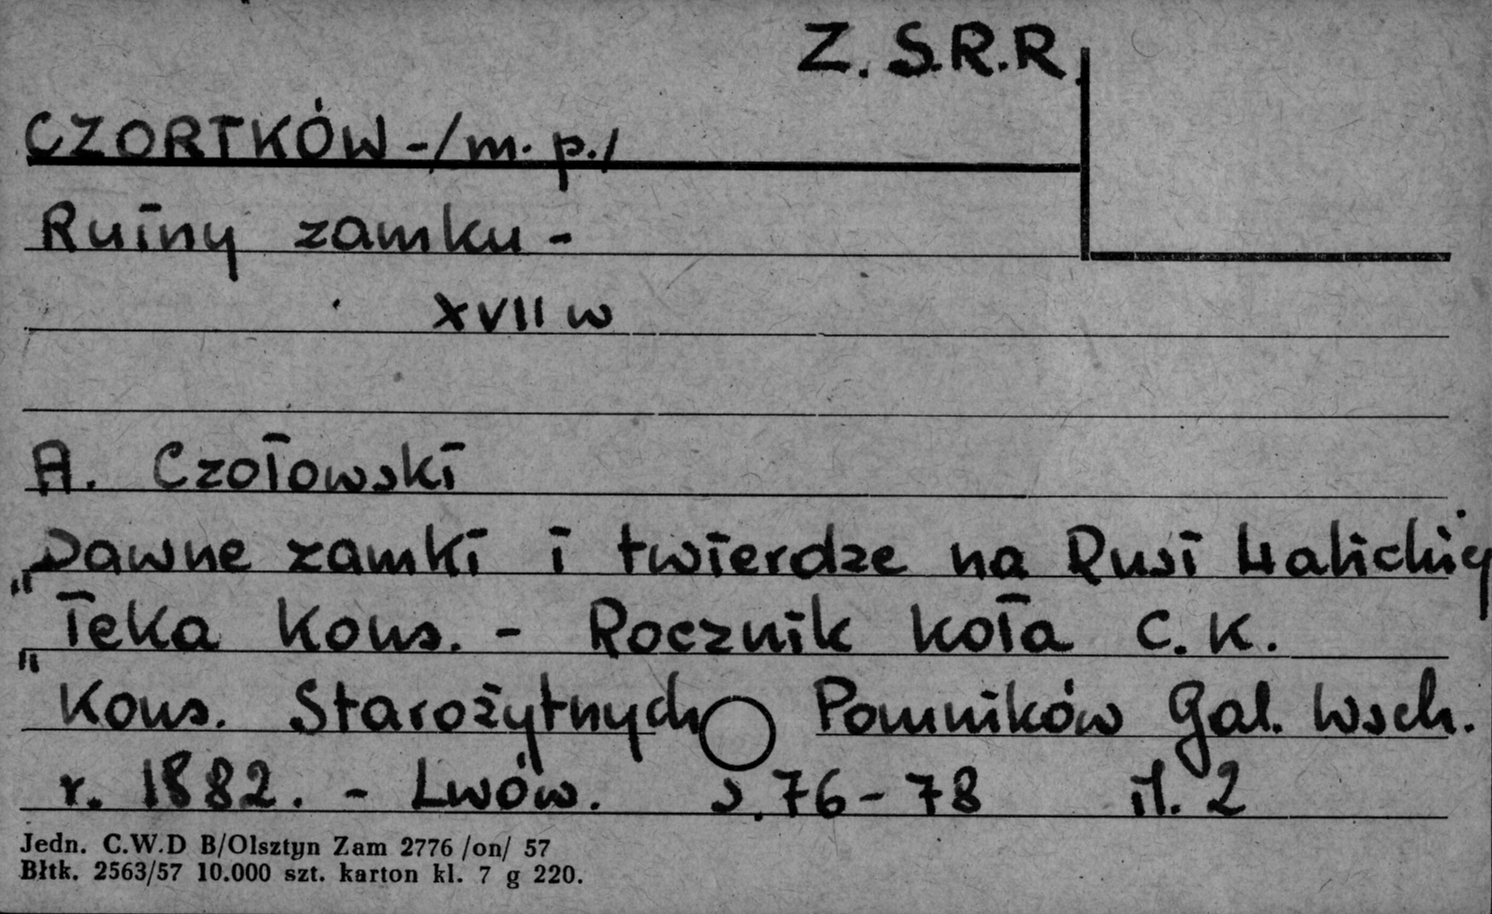 Z. S.R.R.
CZORTKÓW - /m. p./
Ruiny zamku -
XVII w
A. Czołowski
Dawne zamki i twierdze na Rusi Halickiej
"Teka Kons. - Rocznik koła C. K.
"Kons. Starożytnych Pomników Gal. Wsch.
r. 1882. - Lwów. s. 76-78 il. 2
Jedn. C.W.D B/Olsztyn Zam 2776 /on/ 57
Błtk. 2563/57 10.000 szt. karton kl. 7 g 220.